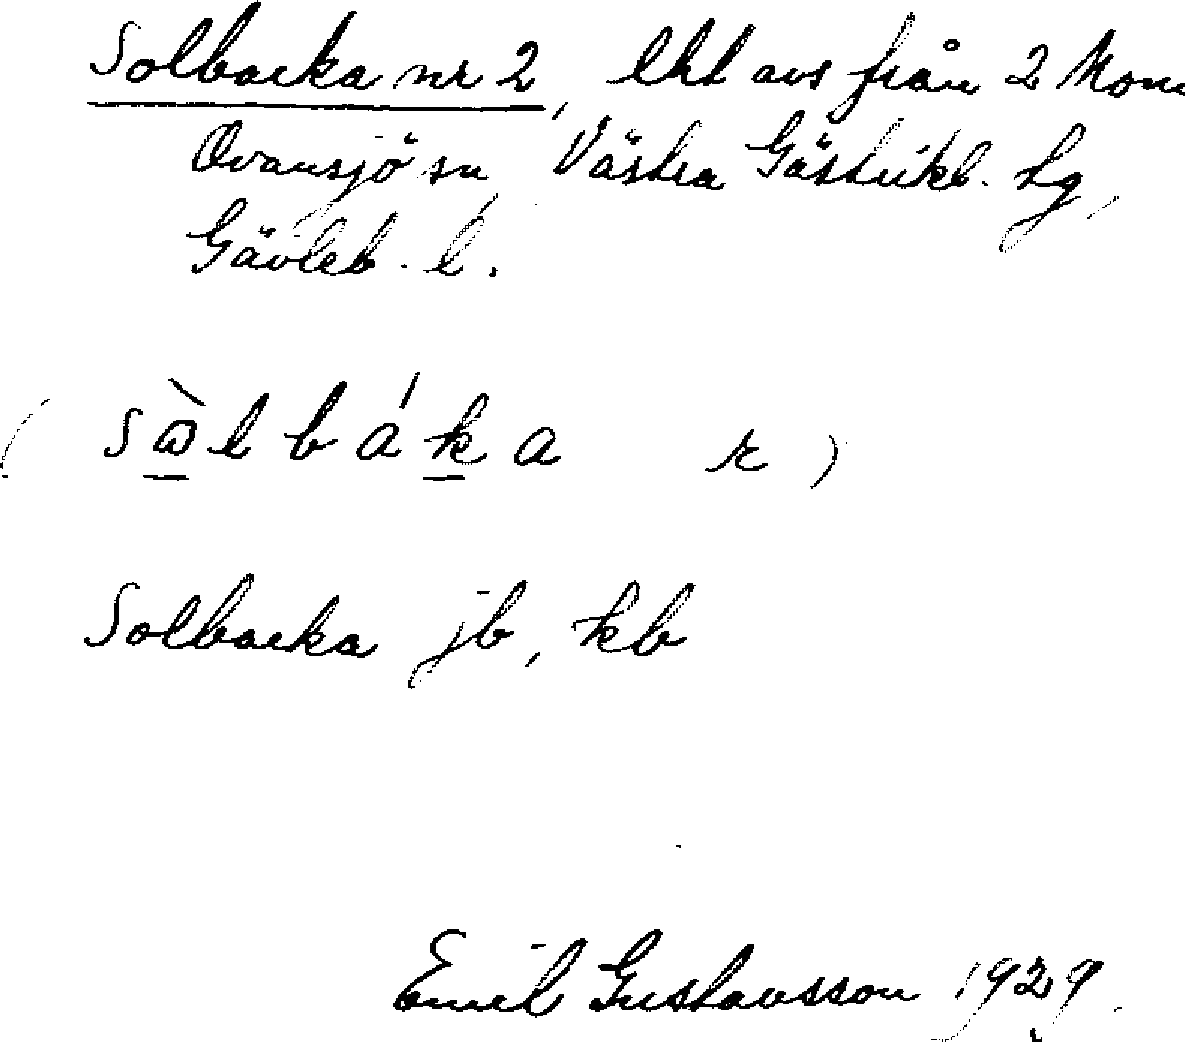 Solbacka nr 2, lht avs från 2 Kom
Ovansjö sn, Västra Gästrikl. tg,
Gävleb. l.
(sὼlbáka r)
Solbacka jb, kb
Emil Gustavsson 1929.